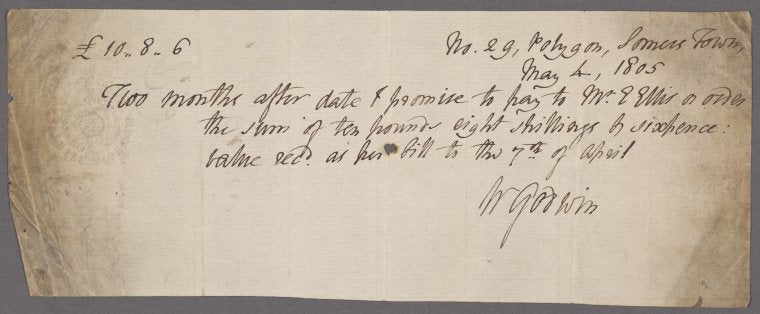 £ 10 .. 8 .. 6
No. 29, Polygon, Somers Town,
May 4, 1805
Two months after date I promise to pay to Mr. E Ellis or order
the sum of ten pounds eight shillings & sixpence:
value recd. as per bill to the 7th of April
W Godwin